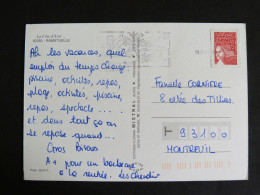 La Côte d'Azur
83350 RAMATUELLE
Ah les vacances, quel
emploi du temps chargé
piscine, activités, repos,
plage, activités, piscine,
repos, spectacle ...
et dans tout ça on
se repose quand...
Gros Bisous
A+ pour un barbecue
à la rentrée.
MISTRAL
Famille
8 allée des Tilleuls
93100
MONTREUIL